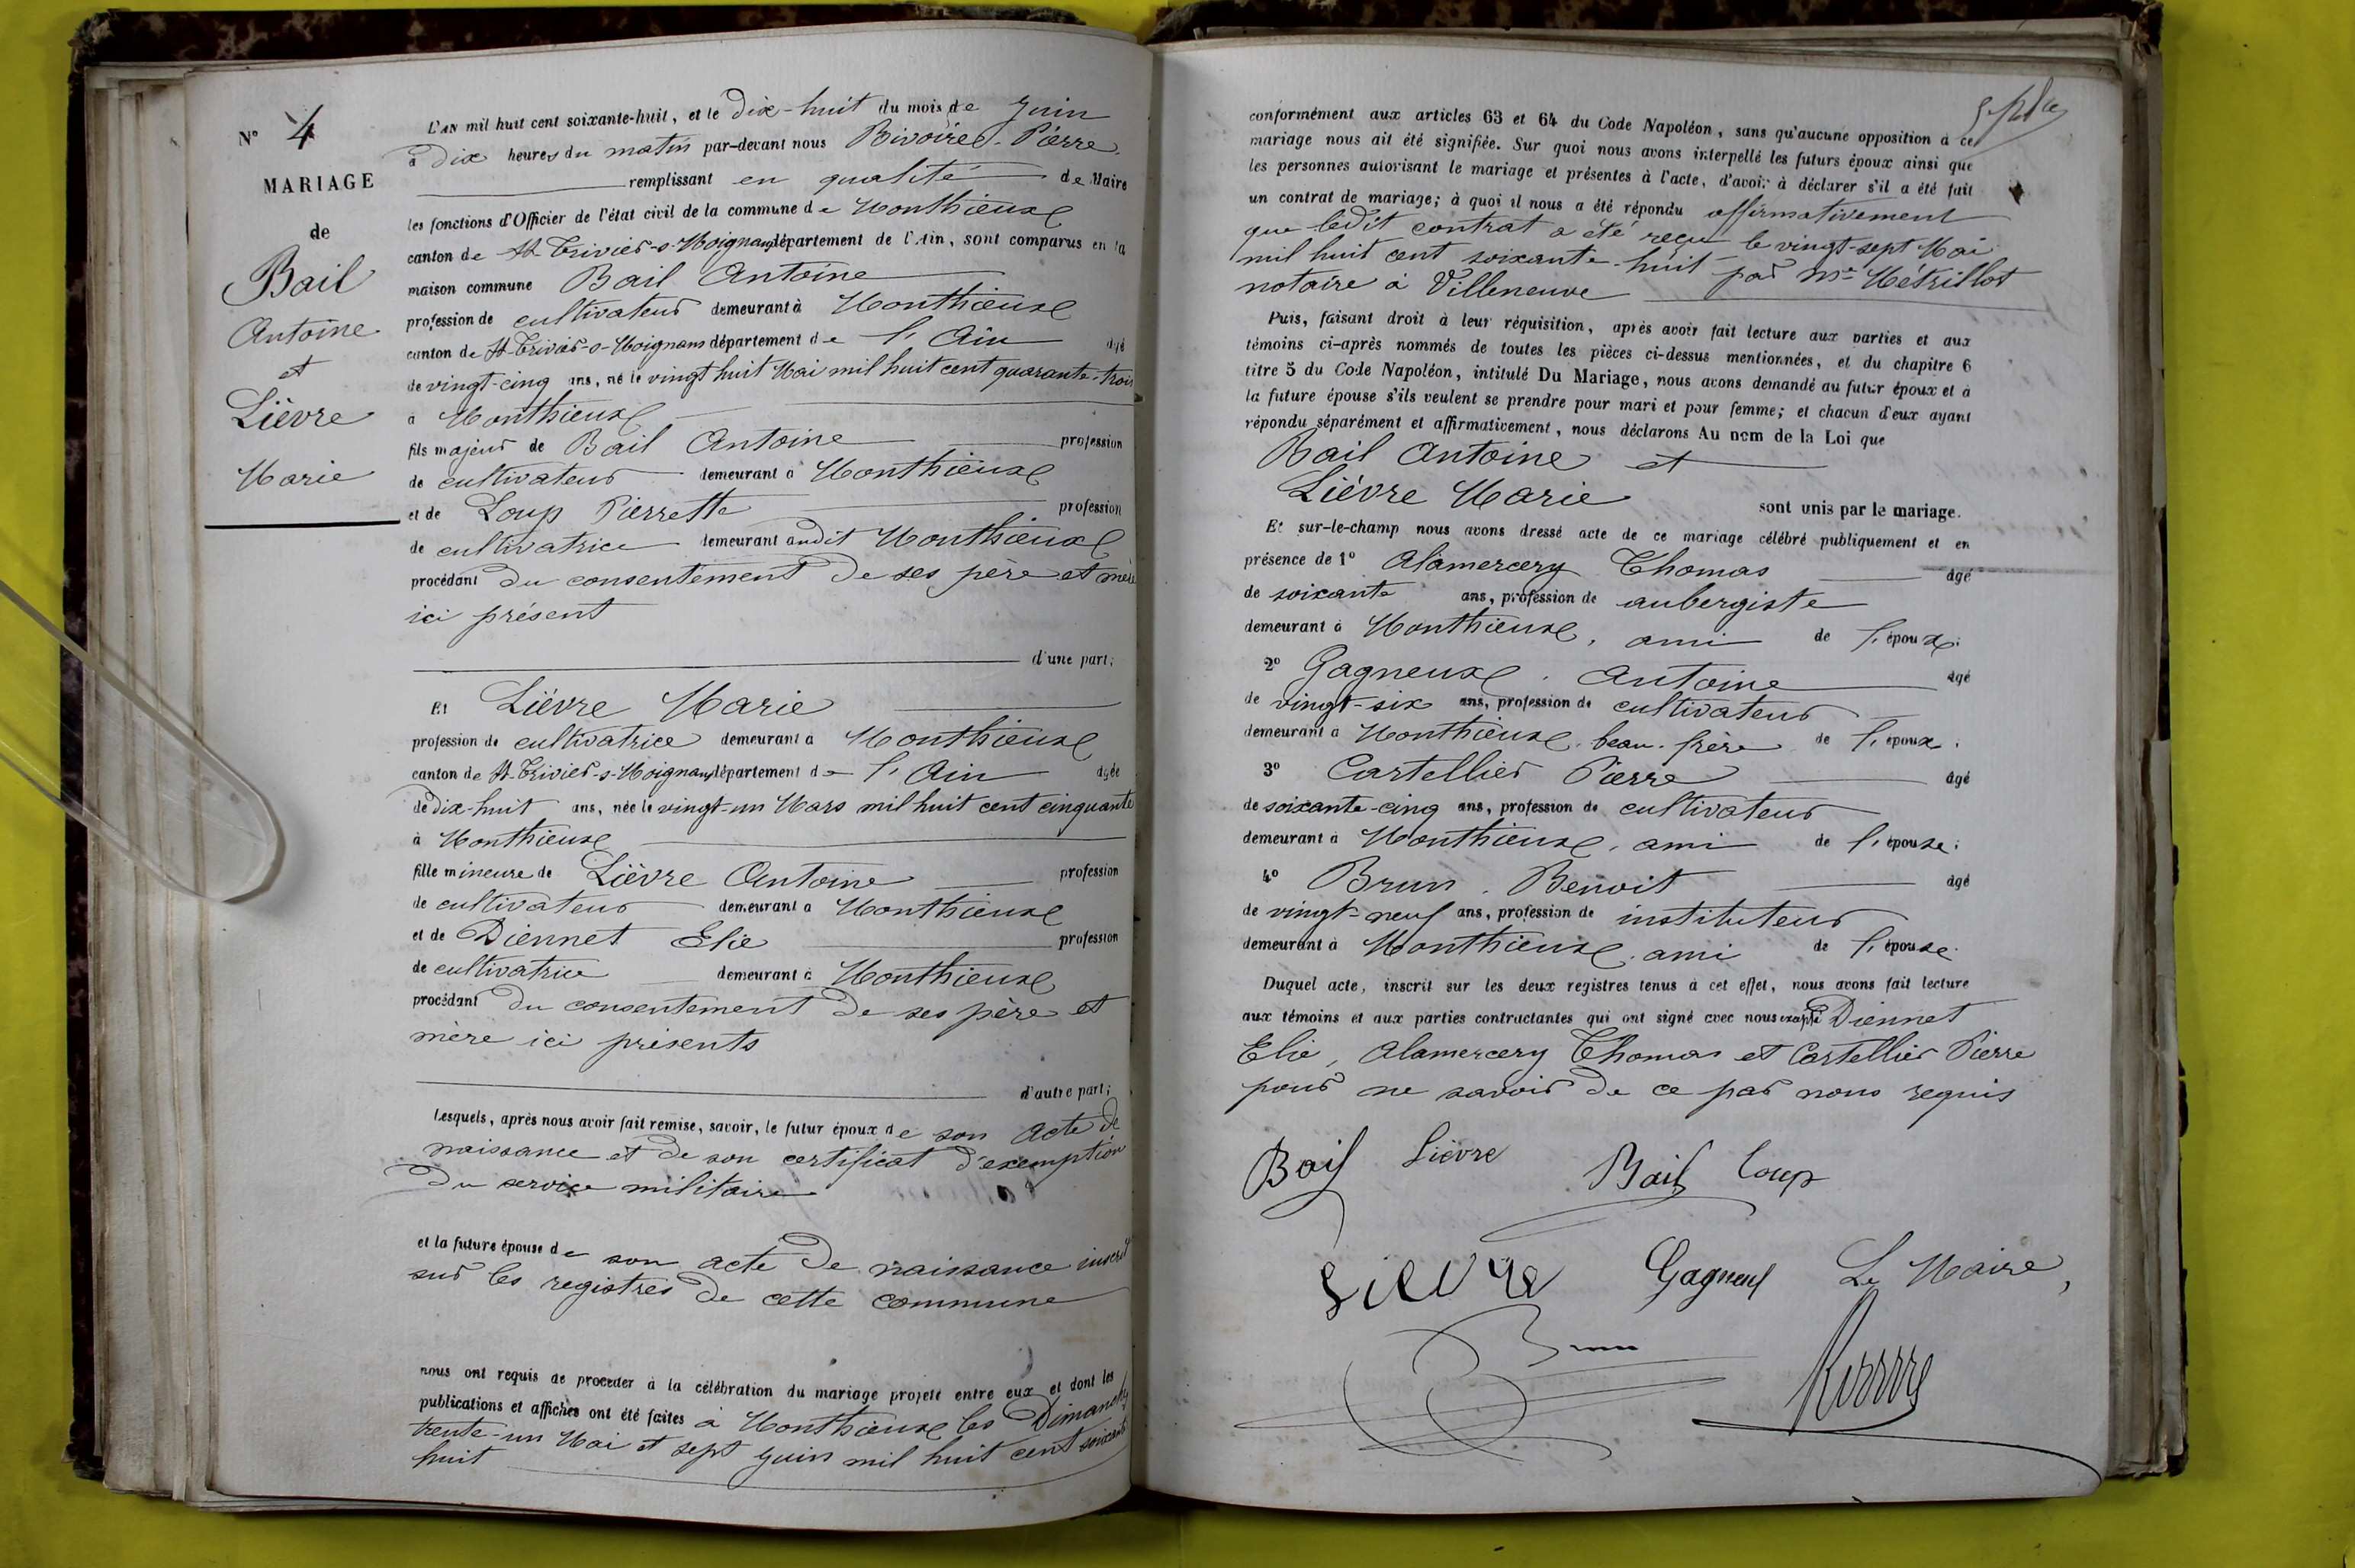 N° 4
MARIAGE
de
Bail
Antoine
et
Lièvre
Marie
L'AN mil huit cent soixante-huit, et le dix-huit du mois de Juin
à dix heures du matin par-devant nous Rivoire Pierre
remplissant en qualité de Maire
les fonctions d'Officier de l'état civil de la commune de Monthieux
canton de St Trivier-s-Moignans département de l'Ain, sont comparus en la
maison commune Bail Antoine
profession de cultivateur demeurant à Monthieux
canton de St Trivier-s-Moignans département de l'Ain âgé
de vingt-cinq ans, né le vingt huit Mai mil huit cent quarante-trois
à Monthieux
fils majeur de Bail Antoine profession
de cultivateur demeurant à Monthieux
et de Loup Pierrette profession
de cultivatrice demeurant audit Monthieux
procédant du consentement de ses père et mère
ici présent
d'une part;
Et Lièvre Marie
profession de cultivatrice demeurant à Monthieux
canton de St Trivier-s-Moignans département de l'Ain âgée
de dix-huit ans, née le vingt-un Mars mil huit cent cinquante
à Monthieux
fille mineure de Lièvre Antoine profession
de cultivateur demeurant à Monthieux
et de Diennet Elie profession
de cultivatrice demeurant à Monthieux
procédant du consentement de ses père et
mère ici présents
d'autre part;
Lesquels, après nous avoir fait remise, savoir, le futur époux de son acte de
naissance et de son certificat d'exemption
du service militaire
et la future épouse de son acte de naissance inscrit
sur les registres de cette commune
nous ont requis de procéder à la célébration du mariage projeté entre eux et dont les
publications et affiches ont été faites à Monthieux les Dimanches
trente-un Mai et sept Juin mil huit cent soixante
huit
conformément aux articles 63 et 64 du Code Napoléon, sans qu'aucune opposition à ce
mariage nous ait été signifiée. Sur quoi nous avons interpellé les futurs époux ainsi que
les personnes autorisant le mariage et présentes à l'acte, d'avoir à déclarer s'il a été fait
un contrat de mariage; à quoi il nous a été répondu affirmativement
que ledit contrat a été reçu le vingt-sept Mai
mil huit cent soixante-huit par Me Métrillot
notaire à Villeneuve
Puis, faisant droit à leur réquisition, après avoir fait lecture aux parties et aux
témoins ci-après nommés de toutes les pièces ci-dessus mentionnées, et du chapitre 6
titre 5 du Code Napoléon, intitulé Du Mariage, nous avons demandé au futur époux et à
la future épouse s'ils veulent se prendre pour mari et pour femme; et chacun d'eux ayant
répondu séparément et affirmativement, nous déclarons Au nom de la Loi que
Bail Antoine et
Lièvre Marie
sont unis par le mariage.
Et sur-le-champ nous avons dressé acte de ce mariage célébré publiquement et en
présence de 1° Alamercery Thomas âgé
de soixante ans, profession de aubergiste
demeurant à Monthieux, ami de l'époux;
2° Gagneux Antoine âgé
de vingt-six ans, profession de cultivateur
demeurant à Monthieux, beau-frère de l'époux;
3° Cartellier Pierre âgé
de soixante-cinq ans, profession de cultivateur
demeurant à Monthieux, ami de l'épouse;
4° Brun Benoit âgé
de vingt-neuf ans, profession de instituteur
demeurant à Monthieux, ami de l'épouse.
Duquel acte, inscrit sur les deux registres tenus à cet effet, nous avons fait lecture
aux témoins et aux parties contractantes qui ont signé avec nous excepté Diennet
Elie, Alamercery Thomas et Cartellier Pierre
pour ne savoir de ce par nous requis
Bail Lièvre Bail Loup
Lievre Gagneux Le Maire,
Brun Rivoire